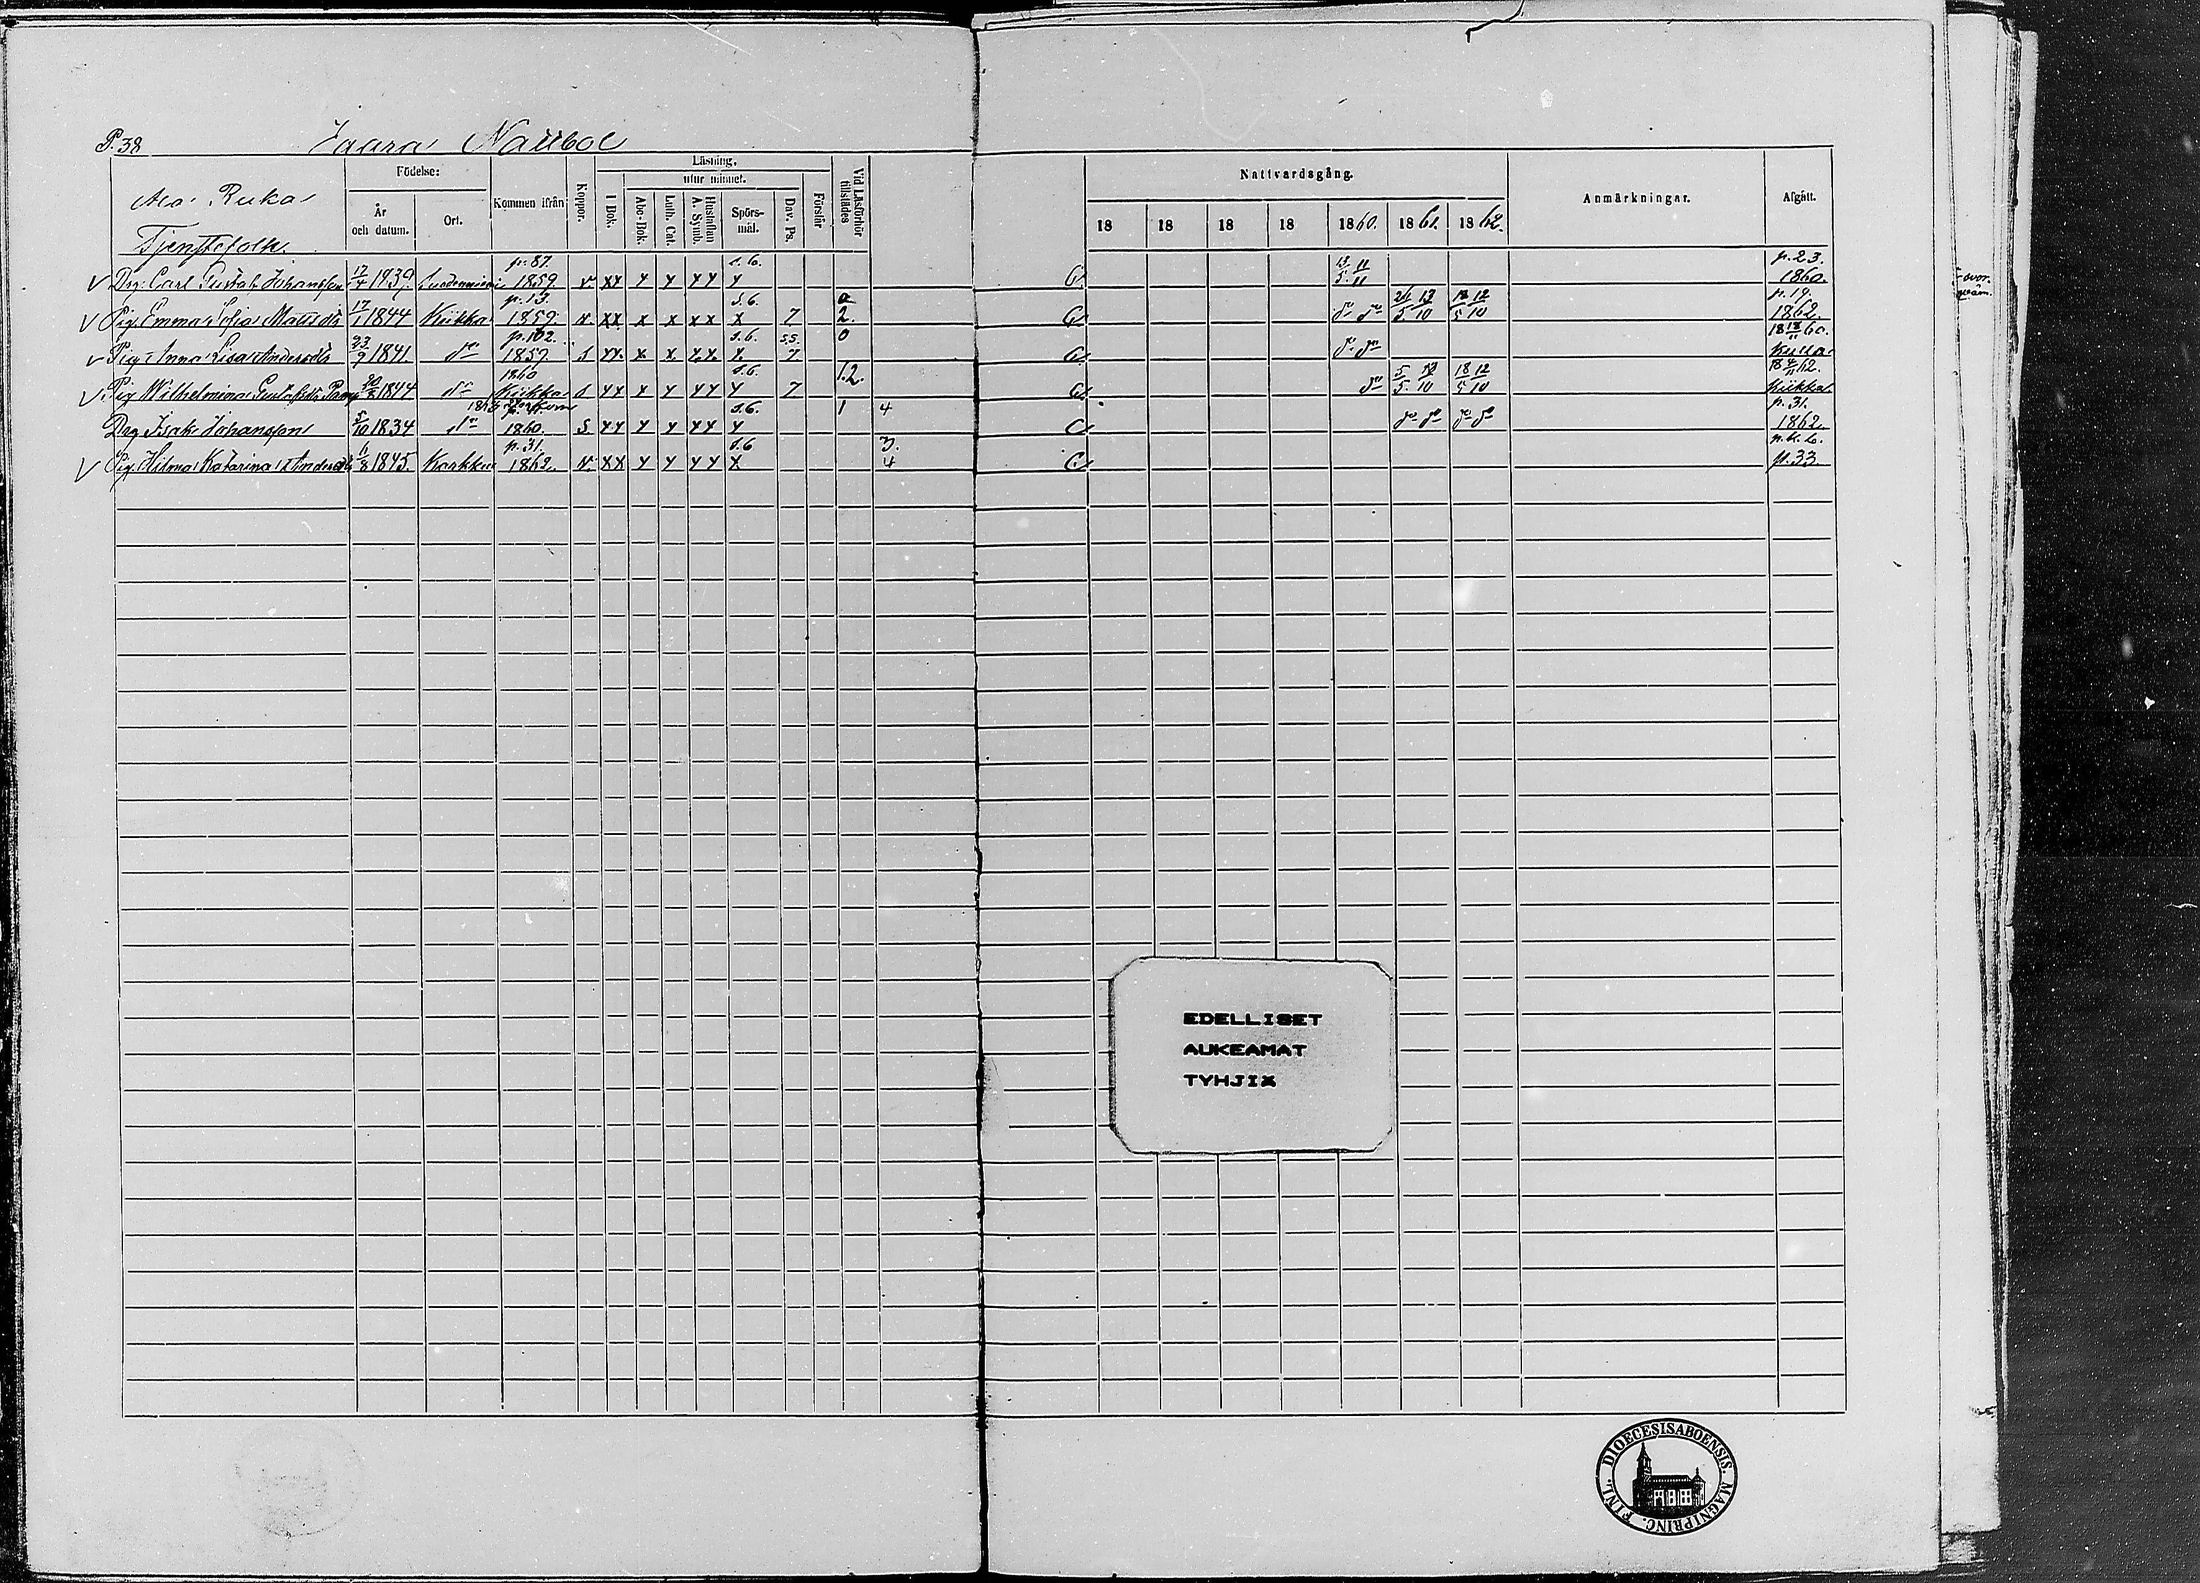 P. 38 Jaara Nattbol
Födelse: Läsning, Vid Läsförhör tillstädes Nattvardsgång. Anmärkningar. Afgått.
utur minnet.
Ala Ruka
År och datum. Ort. Kommen ifrån Koppor. I Bok. Abc-Bok. Luth. Cat. Hustaflan A. Symb. Spörsmål. Dav. Ps. Förstår
18 18 18 18 1860. 1861. 1862.
Tjenstefolk
p. 87. s.6. 13/5 11/11 p. 23.
Drg. Carl Gustaf Johansson 17/4 1839. 1859 v xx y y yy y G. 1860.
p. 13. s.6. a 26/5 13/10 18/5 12/10 p. 19.
Pig. Emma Sofia Matsdr 17/1 1844 Kiikka 1859. v. xx x x xx x 7 2. G do do 1862.
p. 102. s.6. s.s. 0 18 18/11 60.
Pig. Anna Lisa Andersdr 23/9 1841. do 1859. s xx x x xx x 7 G do do
1860 s.6. 1.2. 5/5 13/10 18/5 12/10 18 4/11 62.
Pig Wilhelmina Gustafsdr 1844 do Kiikka s xx x y yy y 7 G do Kiikka
s.6. 1 4 p. 31.
Drg Isak Johansson 5/10 1834 do 1860. s. yy y y yy y G do do do do 1862.
p. 31. s.6 3.
Pig. Hilma Katarina Andersdr 11/8 1845. Karkku 1862. v. xx y y yy x 4 G p. 33.
EDELLISET
AUKEAMAT
TYHJIÄ
FINL. DIOECESIS ABOENSIS. MAGNI PRINC.